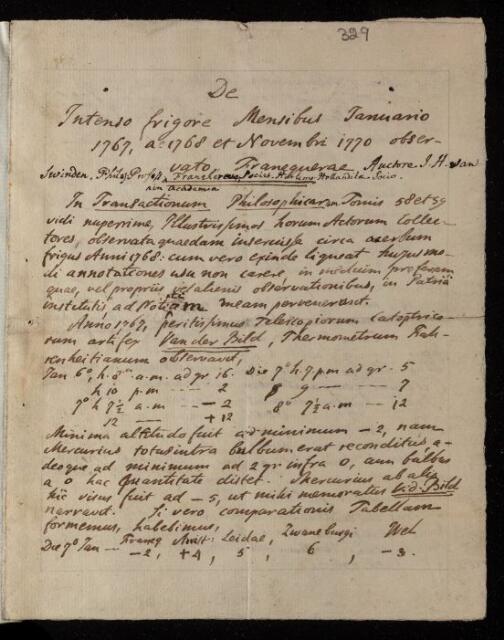 329
De
Intenso frigore Mensibus Ianuario
1767, ac 1768 et Novembri 1770 obser-
vato, Franequerae Auctore J. H. van
Swinden. Philos. Profess. Socio
Academia
In Transactionum Philosophicarum Tomis 58 et 59
vidi nuperrime, Illustrissimos horum Actorum Collec-
tores, observata quaedam inseruisse circa acerbum
frigus Anni 1768: cum vero exinde liqueat hujusmo-
di annotationes usu non carere, in medium proferam
quae, vel propriis vel alienis observationibus, in Patriâ
institutis, ad Notitiam meam pervenerunt.
Anno 1767, peritissimus Telescopiorum Catoptrico-
rum artifex Van der Bild, Thermometrum Fah-
renheitianum observavit,
Ian 6°, h. 8 a.m. ad gr 16. Die 7° h. 7. p.m ad gr - 5
h 10 p.m --- 2 8 9 --- 7
7° h 7½ a.m --- 2 8° 7½ a.m --- 12
12 --- +12
Minima altitudo fuit ad minimum - 2, nam
Mercurius totus intra bulbum erat reconditus a-
deoque ad minimum ad 2 gr infra 0, cum bulbus
a 0 hac quantitate distet. Mercurius ab aliis
hic visus fuit ad - 5, ut mihi memoratus Vd. Bild
narravit. Si vero comparationis Tabellam
formemus, habebimus,
Die 7° Ian -- Franeq Amst: Leidae, Zwanenburgi Wel
- 2, +4, 5, 6, - 3.